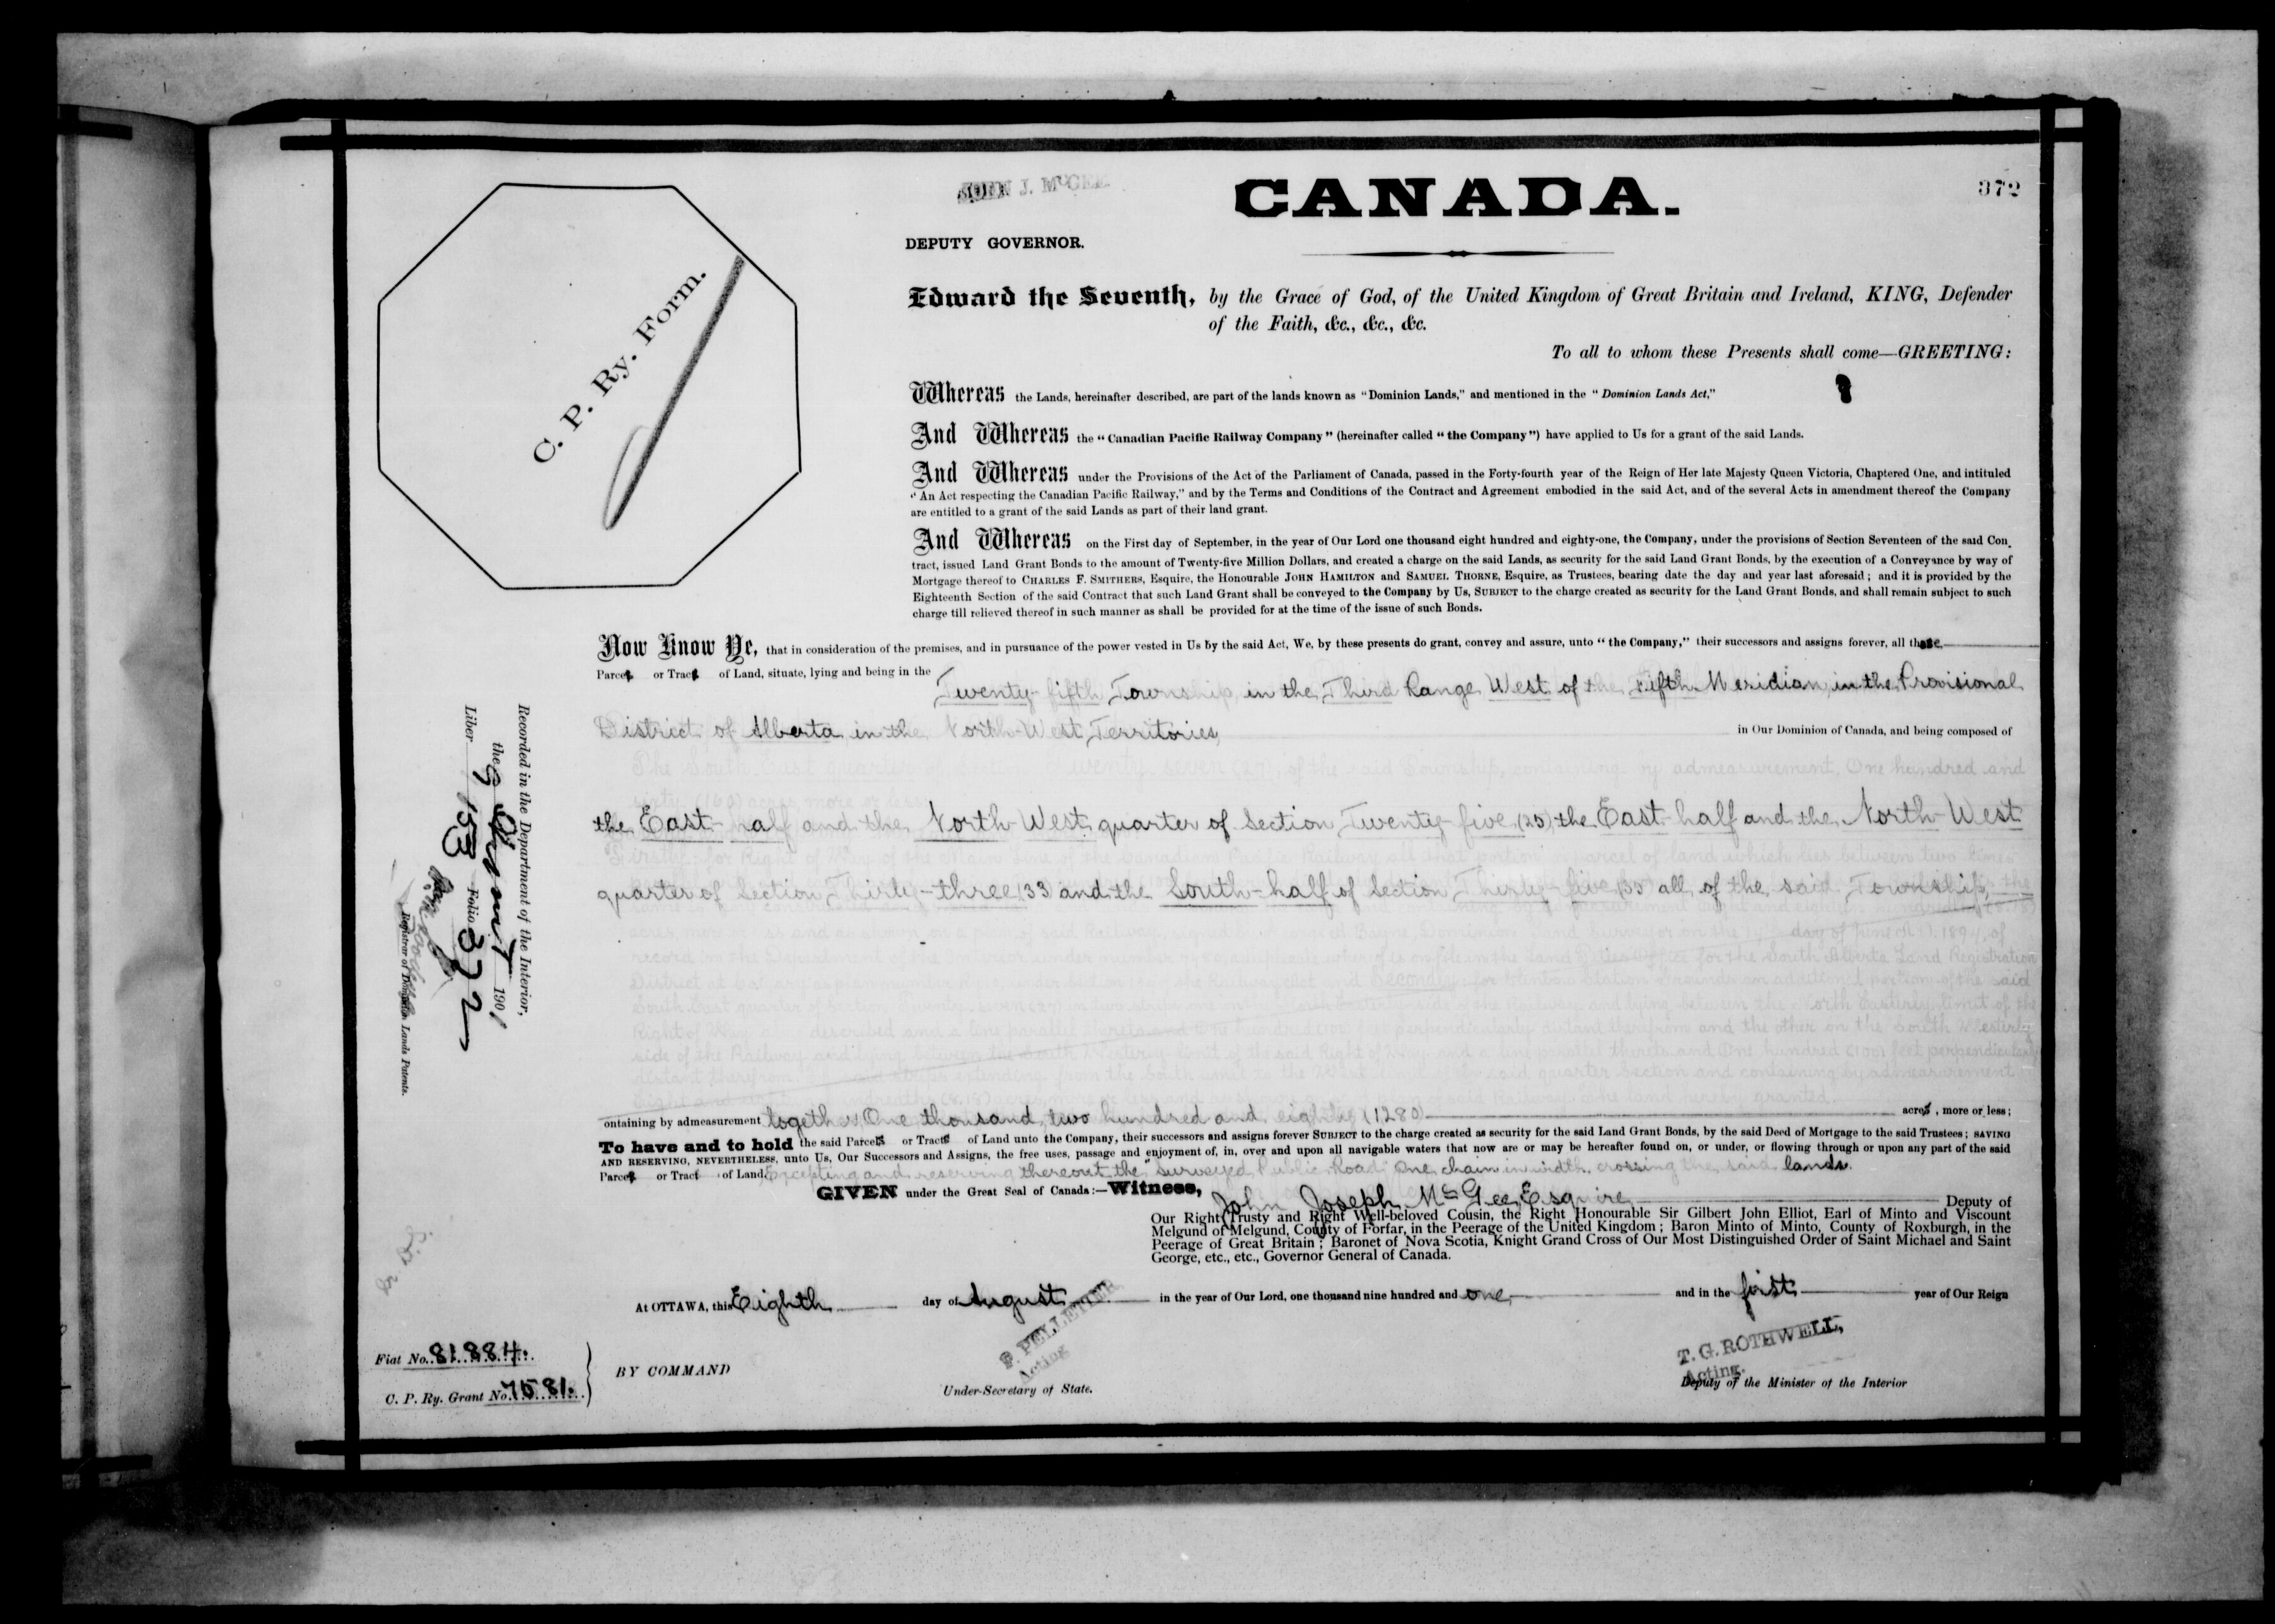 372
JOHN J. McGEE
CANADA.
DEPUTY GOVERNOR.
C. P. Ry. Form.
Edward the Seventh, by the Grace of God, of the United Kingdom of Great Britain and Ireland, KING, Defender
of the Faith, &c., &c., &c.
To all to whom these Presents shall come—GREETING:
Whereas the Lands, hereinafter described, are part of the lands known as "Dominion Lands," and mentioned in the "Dominion Lands Act,"
And Whereas the "Canadian Pacific Railway Company" (hereinafter called "the Company") have applied to Us for a grant of the said Lands.
And Whereas under the Provisions of the Act of the Parliament of Canada, passed in the Forty-fourth year of the Reign of Her late Majesty Queen Victoria, Chaptered One, and intituled
"An Act respecting the Canadian Pacific Railway," and by the Terms and Conditions of the Contract and Agreement embodied in the said Act, and of the several Acts in amendment thereof the Company
are entitled to a grant of the said Lands as part of their land grant.
And Whereas on the First day of September, in the year of Our Lord one thousand eight hundred and eighty-one, the Company, under the provisions of Section Seventeen of the said Con
tract, issued Land Grant Bonds to the amount of Twenty-five Million Dollars, and created a charge on the said Lands, as security for the said Land Grant Bonds, by the execution of a Conveyance by way of
Mortgage thereof to CHARLES F. SMITHERS, Esquire, the Honourable JOHN HAMILTON and SAMUEL THORNE, Esquire, as Trustees, bearing date the day and year last aforesaid; and it is provided by the
Eighteenth Section of the said Contract that such Land Grant shall be conveyed to the Company by Us, SUBJECT to the charge created as security for the Land Grant Bonds, and shall remain subject to such
charge till relieved thereof in such manner as shall be provided for at the time of the issue of such Bonds.
Now Know Ye, that in consideration of the premises, and in pursuance of the power vested in Us by the said Act, We, by these presents do grant, convey and assure, unto "the Company," their successors and assigns forever, all those
Parcels or Tracts of Land, situate, lying and being in the Twenty-fifth Township, in the Third Range West of the Fifth Meridian, in the Provisional
District of Alberta in the North-West Territories, in Our Dominion of Canada, and being composed of
the East-half and the North-West quarter of Section Twenty-five (25) the East-half and the North-West
quarter of Section Thirty-three (33) and the South-half of Section Thirty-five (35) all of the said Township,
ontaining by admeasurement together One thousand two hundred and eighty (1280) acres, more or less;
To have and to hold the said Parcels or Tracts of Land unto the Company, their successors and assigns forever SUBJECT to the charge created as security for the said Land Grant Bonds, by the said Deed of Mortgage to the said Trustees; SAVING
AND RESERVING, NEVERTHELESS, unto Us, Our Successors and Assigns, the free uses, passage and enjoyment of, in, over and upon all navigable waters that now are or may be hereafter found on, or under, or flowing through or upon any part of the said
Parcels or Tracts of Land. Excepting and reserving thereout the surveyed Public Road One chain in width crossing the said lands.
GIVEN under the Great Seal of Canada:—Witness, John Joseph McGee, Esquire, Deputy of
Our Right Trusty and Right Well-beloved Cousin, the Right Honourable Sir Gilbert John Elliot, Earl of Minto and Viscount
Melgund of Melgund, County of Forfar, in the Peerage of the United Kingdom; Baron Minto of Minto, County of Roxburgh, in the
Peerage of Great Britain; Baronet of Nova Scotia, Knight Grand Cross of Our Most Distinguished Order of Saint Michael and Saint
George, etc., etc., Governor General of Canada.
At OTTAWA, this Eighth day of August in the year of Our Lord, one thousand nine hundred and one and in the first year of Our Reign
P. PELLETIER
Acting
T. G. ROTHWELL,
Acting.
Fiat No. 81884.
C. P. Ry. Grant No. 7581.
BY COMMAND
Under-Secretary of State.
Deputy of the Minister of the Interior
Recorded in the Department of the Interior,
the 9 August 1901
Liber 153 Folio 372
Registrar of Dominion Lands Patents.